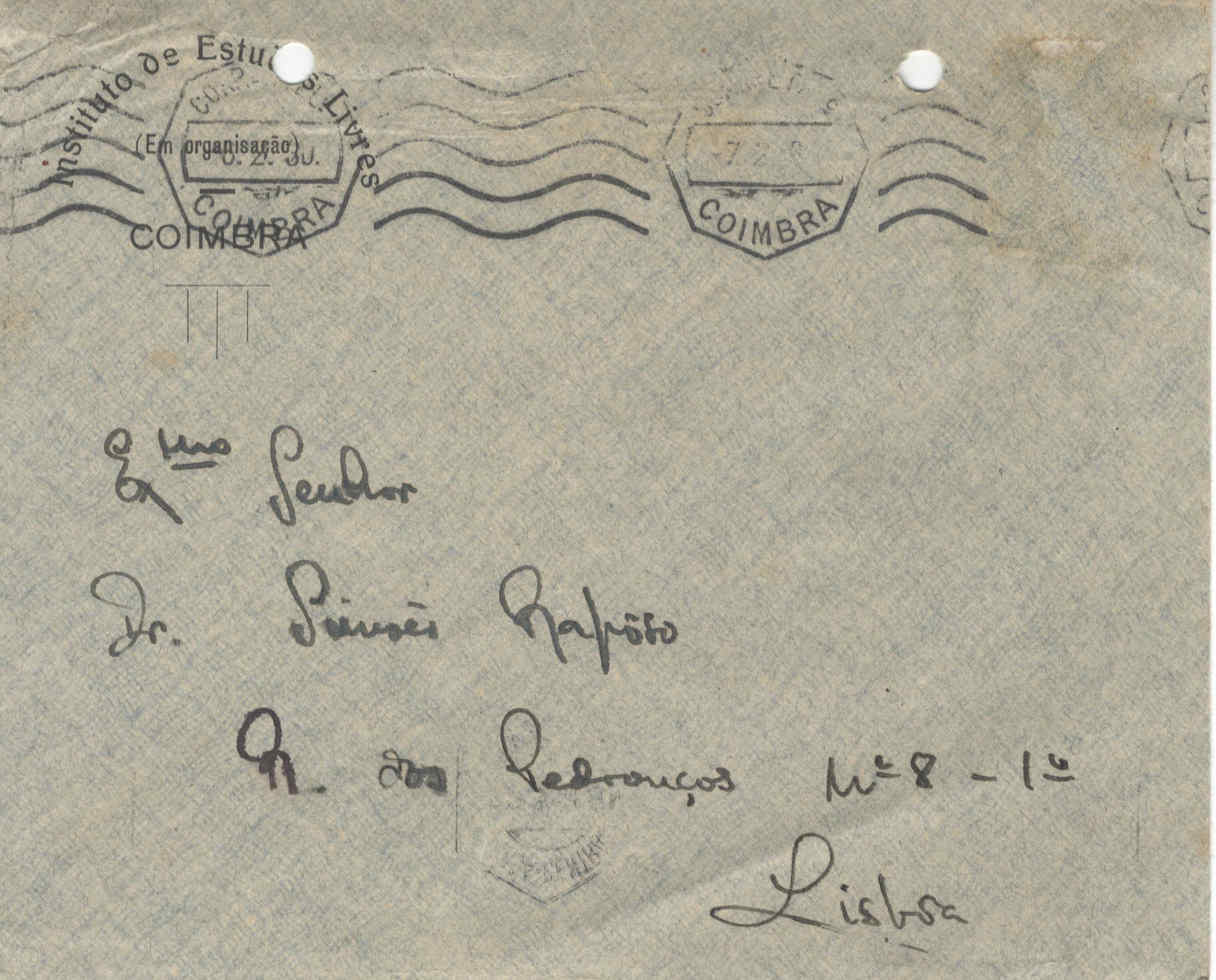 Instituto de Estudos Livres
(Em organisação)
COIMBRA
COIMBRA
COIMBRA
Exmo Senhor
Dr. Simões Rapôso
R. dos Pedrouços Nº 8 - 1º
Lisboa